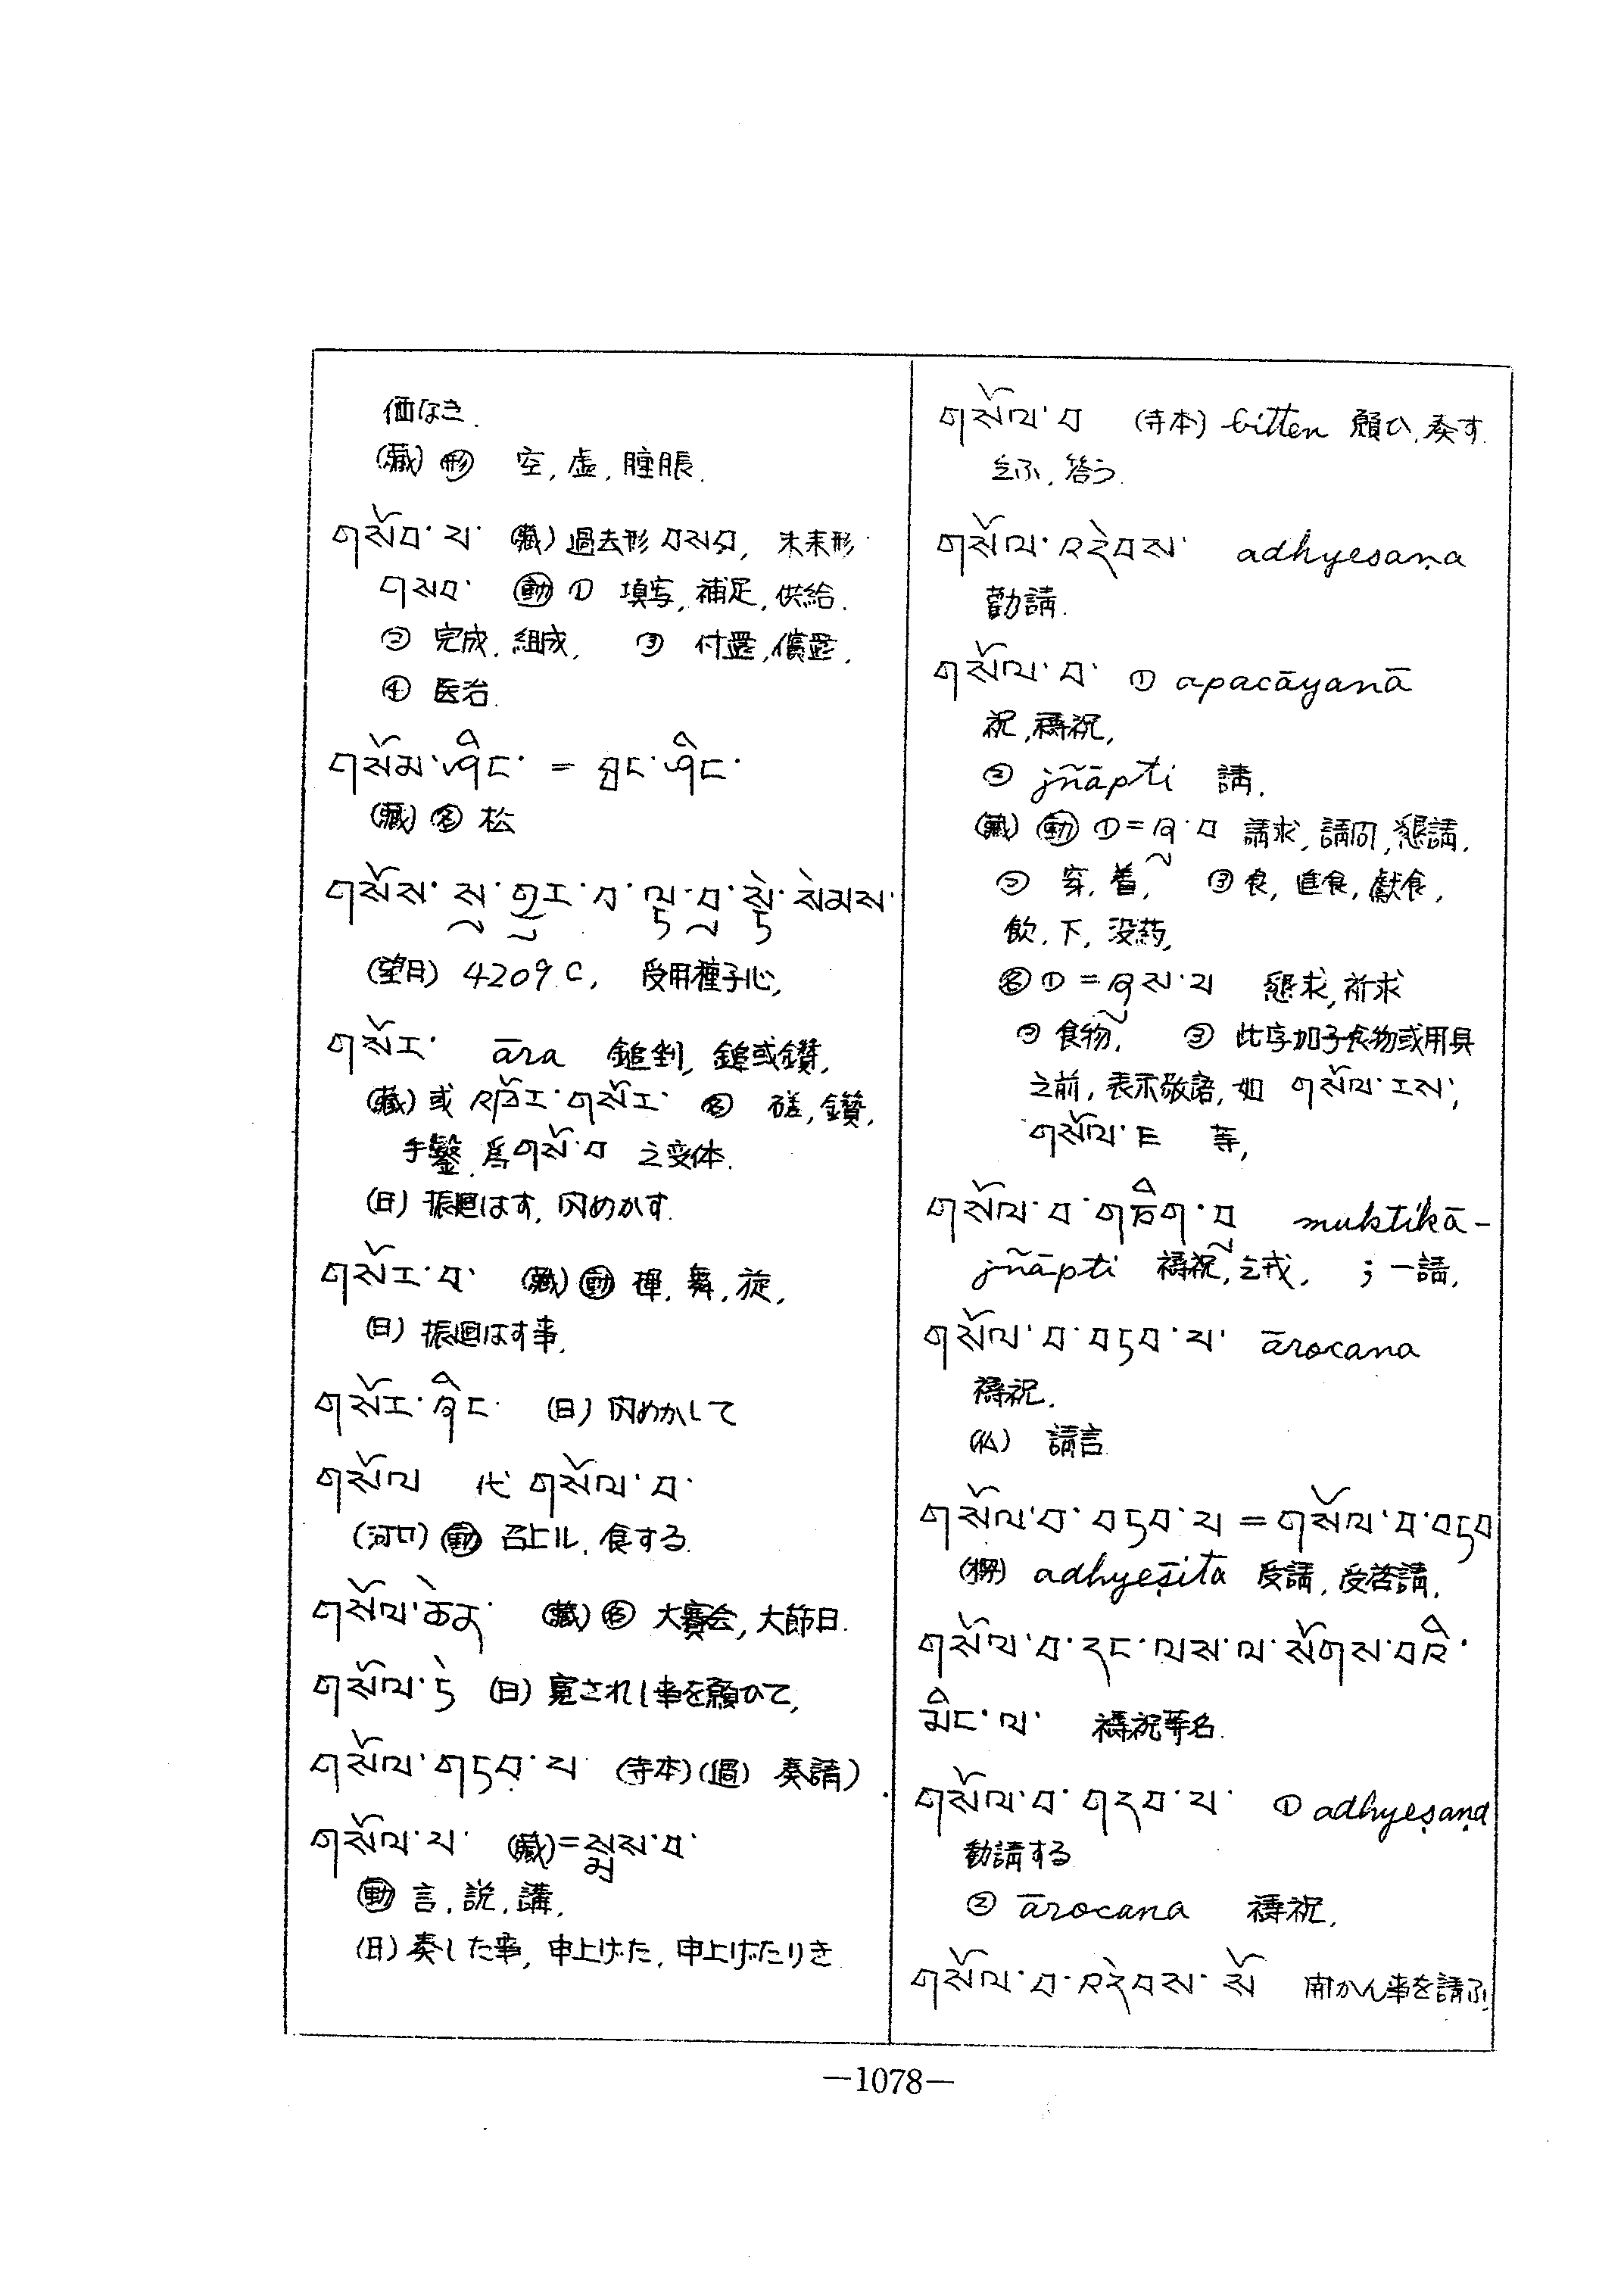 価なき.
(蔵) 形 空, 虚, 膣脹.
གསོབ་པ་ (蔵) 過去形 བསབ, 未来形
གསབ་ 動 ① 填写, 補足, 供給.
② 完成, 組成, ③ 付還, 償還,
④ 医治.
གསོམ་ཤིང་ = ཐང་ཤིང་
(蔵) 名 松
(望月) 4209 C, 受用種子心,
གསོར་ āra 鎚剉, 鎚或鑽,
(蔵) 或 འབོར་གསོར་ 名 磋, 鑽,
手鑿, 為 གསོ་བ 之変体.
(日) 振廻はす, 閃めかす.
གསོར་བ་ (蔵) 動 揮, 舞, 旋,
(日) 振廻はす事,
གསོར་ཞིང་ (日) 閃めかして
གསོལ 代 གསོལ་བ་
(河口) 動 召上ル, 食する.
གསོལ་ཆེན་ (蔵) 名 大賽会, 大節日.
གསོལ་ཏེ (日) 寛されし事を願ひて,
གསོལ་གཏབ་པ (寺本) (過) 奏請)
གསོལ་པ་ (蔵) = སྨྲས་བ་
動 言, 説, 講,
(日) 奏した事, 申上げた, 申上げたりき.
གསོལ་བ (寺本) bitten 願ひ, 奏す.
乞ふ, 答う.
གསོལ་འདེབས་ adhyesaṇa
勸請.
གསོལ་བ་ ① apacāyanā
祝, 禱祝,
② jñāpti 請.
(蔵) 動 ① = ཞུ་བ 請求, 請問, 懇請,
② 穿, 着, ③ 食, 進食, 獻食,
飲, 下, 没葯,
名 ① = ཞུས་པ 懇求, 祈求
② 食物, ③ 此字加子食物或用具
之前, 表示敬語, 如 གསོལ་རས་,
གསོལ་ཇ 等,
གསོལ་བ་གཅིག་བུ muktikā-
jñāpti 禱祝, 乞戒, ; 一請,
གསོལ་བ་བཏབ་པ་ ārocana
禱祝.
(仏) 請言.
གསོལ་བ་བཏབ་པ = གསོལ་བ་བཏབ
(榊) adhyeṣita 受請, 受啓請,
གསོལ་བ་དང་ལས་ལ་སོགས་བའི་
མིང་ལ་ 禱祝等名.
གསོལ་བ་གདབ་པ་ ① adhyeṣaṇa
勧請する
② ārocana 禱祝,
གསོལ་བ་འདེབས་སོ 開かん事を請ふ
—1078—